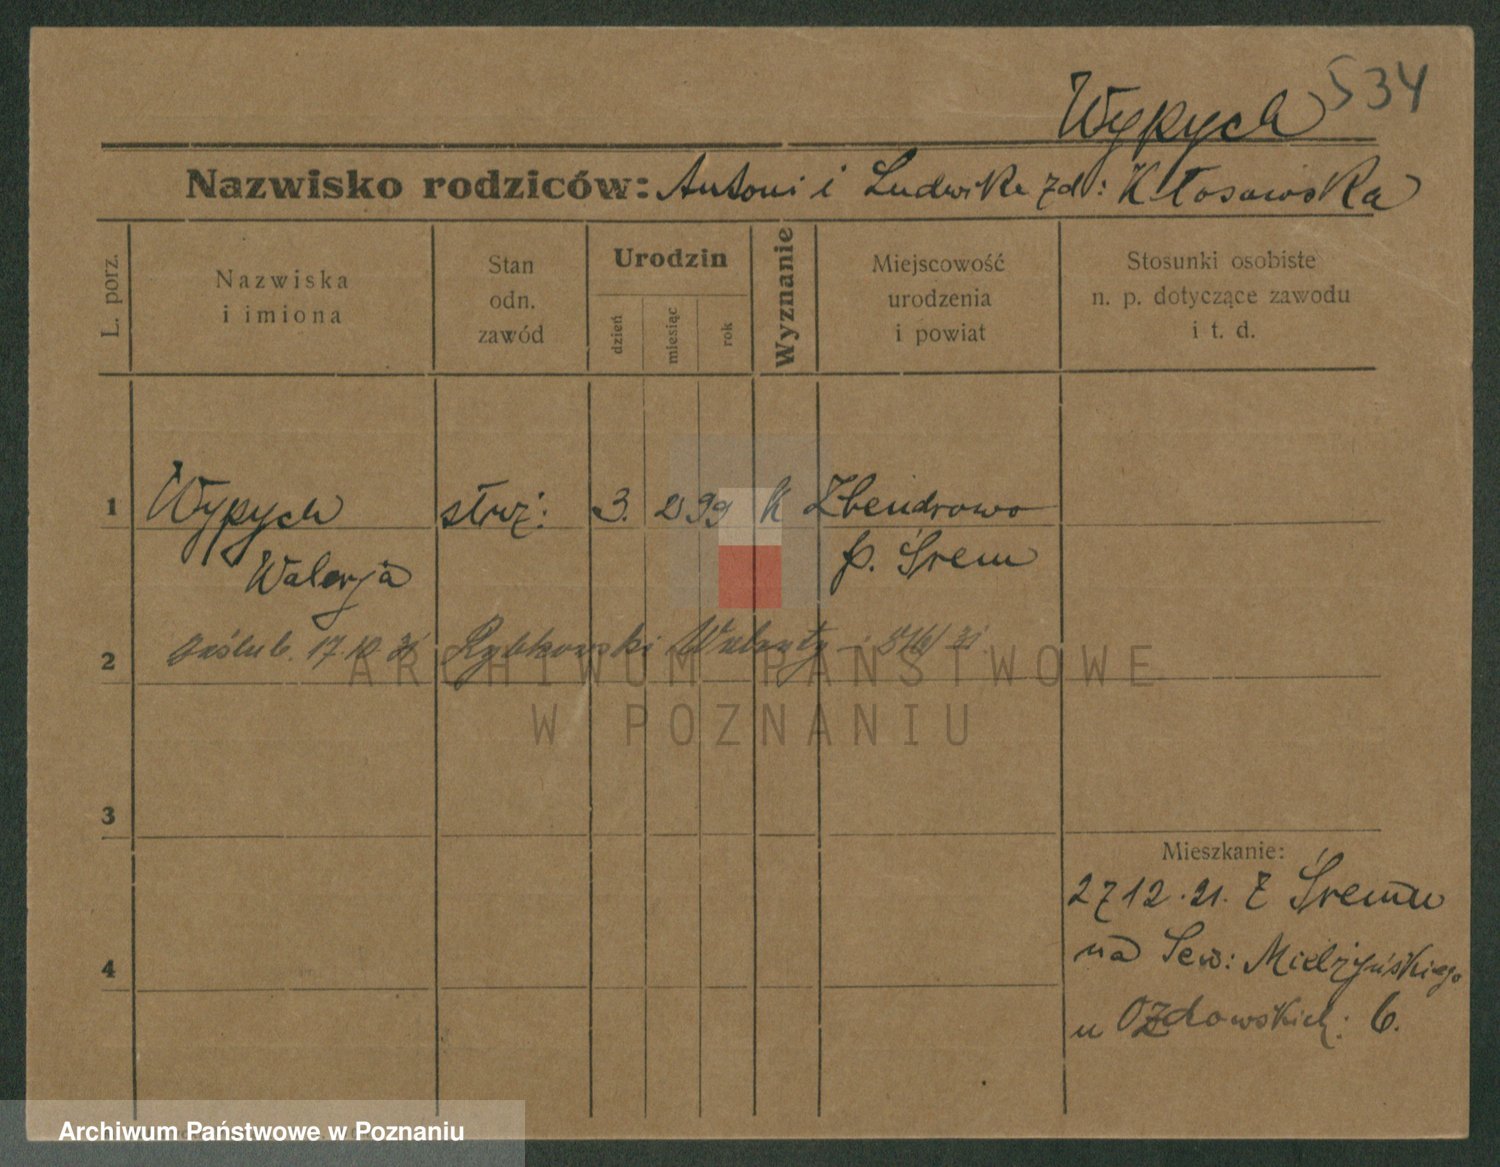 Wypych 534
Nazwisko rodziców: Antoni i Ludwika zd: Kłosowska
L. porz.
Nazwiska
i imiona
Stan
odn.
zawód
Urodzin
dzień
miesiąc
rok
Wyznanie
Miejscowość
urodzenia
i powiat
Stosunki osobiste
n. p. dotyczące zawodu
i t. d.
1 Wypych służ: 3. 2 99 K Zbendrowo
Walerja p. Śrem
2 zaślub. 17.10.31 Rybkowski Walenty
ARCHIWUM PAŃSTWOWE
W POZNANIU
3
Mieszkanie:
27 12. 21. z Śremu
na Sew: Mielżyńskiego
4
u Ożdowskich: 6.
Archiwum Państwowe w Poznaniu